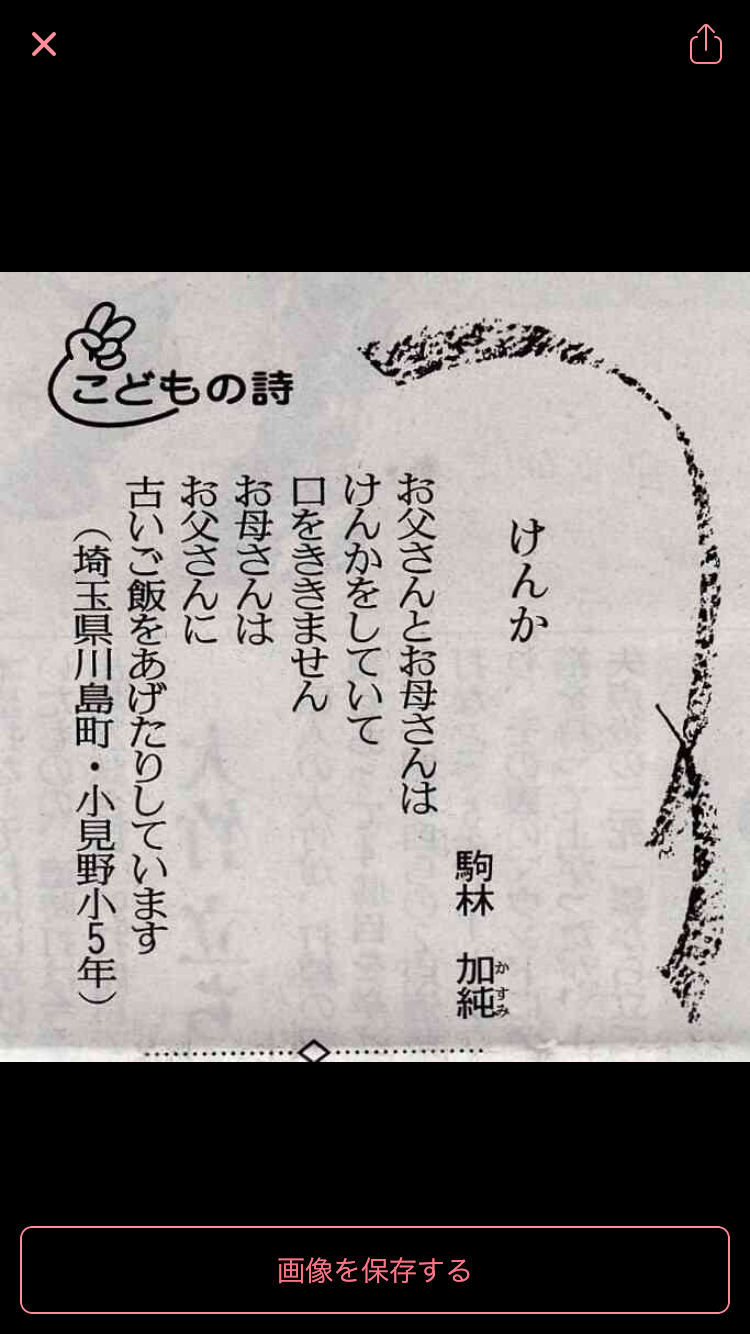 こどもの詩
けんか
駒林 加純
かすみ
お父さんとお母さんは
けんかをしていて
口をききません
お母さんは
お父さんに
古いご飯をあげたりしています
（埼玉県川島町・小見野小5年）
画像を保存する